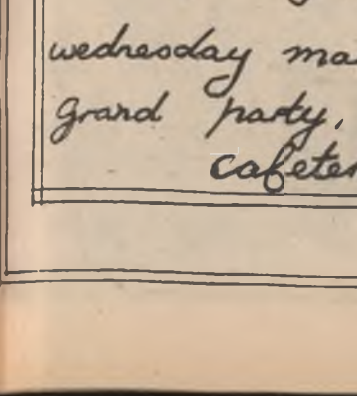 wednesday ma
grand party,
cafeter